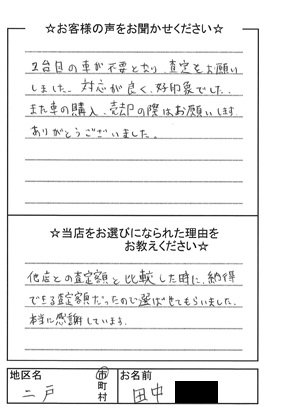 ☆お客様の声をお聞かせください☆
2台目の車が不要となり、査定をお願い
しました。対応が良く、好印象でした。
また車の購入、売却の際はお願いします
ありがとうございました。
☆当店をお選びになられた理由を
お教えください☆
他店との査定額と比較した時に、納得
できる査定額だったので選ばせてもらいました。
本当に感謝しています。
地区名
二戸
市
町
村
お名前
田中